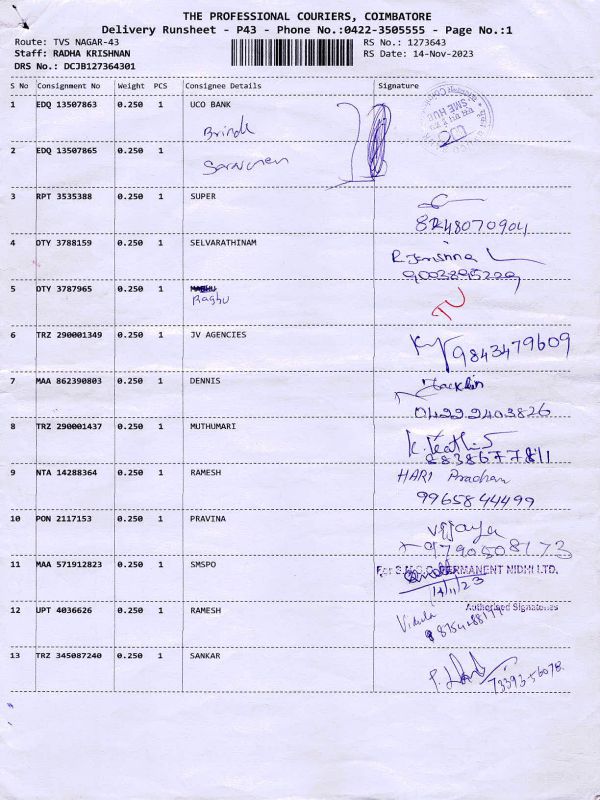 THE PROFESSIONAL COURIERS, COIMBATORE
Delivery Runsheet - P43 - Phone No.:0422-3505555 - Page No.:1
Route: TVS NAGAR-43 RS No.: 1273643
Staff: RADHA KRISHNAN RS Date: 14-Nov-2023
DRS No.: DCJB127364301
S No Consignment No Weight PCS Consignee Details Signature
1 EDQ 13507863 0.250 1 UCO BANK
SME HUB
2 EDQ 13507865 0.250 1
3 RPT 3535388 0.250 1 SUPER
4 OTY 3788159 0.250 1 SELVARATHINAM
5 OTY 3787965 0.250 1
Raghu
6 TRZ 290001349 0.250 1 JV AGENCIES
9843479609
7 MAA 862390803 0.250 1 DENNIS
04222403826
8 TRZ 290001437 0.250 1 MUTHUMARI
9 NTA 14288364 0.250 1 RAMESH HARI Pradhan
9965844499
10 PON 2117153 0.250 1 PRAVINA Vijaya
9790508173
11 MAA 571912823 0.250 1 SMSPO PERMANENT NIDHI LTD.
14/11/23
Authorised Signatories
12 UPT 4036626 0.250 1 RAMESH
13 TRZ 345087240 0.250 1 SANKAR
7339356078